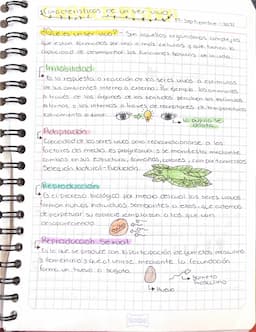 Características de un ser vivo
Septiembre - 2021
¿Qué es un ser vivo? - Son aquellos organismos complejos
que están formados por una o más células y que tienen la
capacidad de desempeñar las funciones básicas de la vida.
Irritabilidad:
Es la respuesta o reacción de los seres vivos a estímulos
de sus ambientes interno o externo. Por ejemplo: los animales
a través de los órganos de los sentidos perciben los estímulos
externos, y los internos a través de receptores de temperatura
la pupila se
dilata.
Adaptación:
Capacidad de los seres vivos para
factores del medio, es progresiva, y se manifiesta mediante
cambios en sus estructura, tamaños, colores, comportamientos
Selección natural - Evolución.
Reproducción:
Es el proceso biológico por medio del cual los seres vivos
forman nuevos individuos semejantes a ellos, que además
de perpetuar su especie remplazan a los que van
desapareciendo.
Reproducción Sexual:
Es la que se produce con la participación de gametos masculino
y femenino y que al unirse mediante la fecundación
forma un huevo o zigoto.
gameto
masculino
Huevo